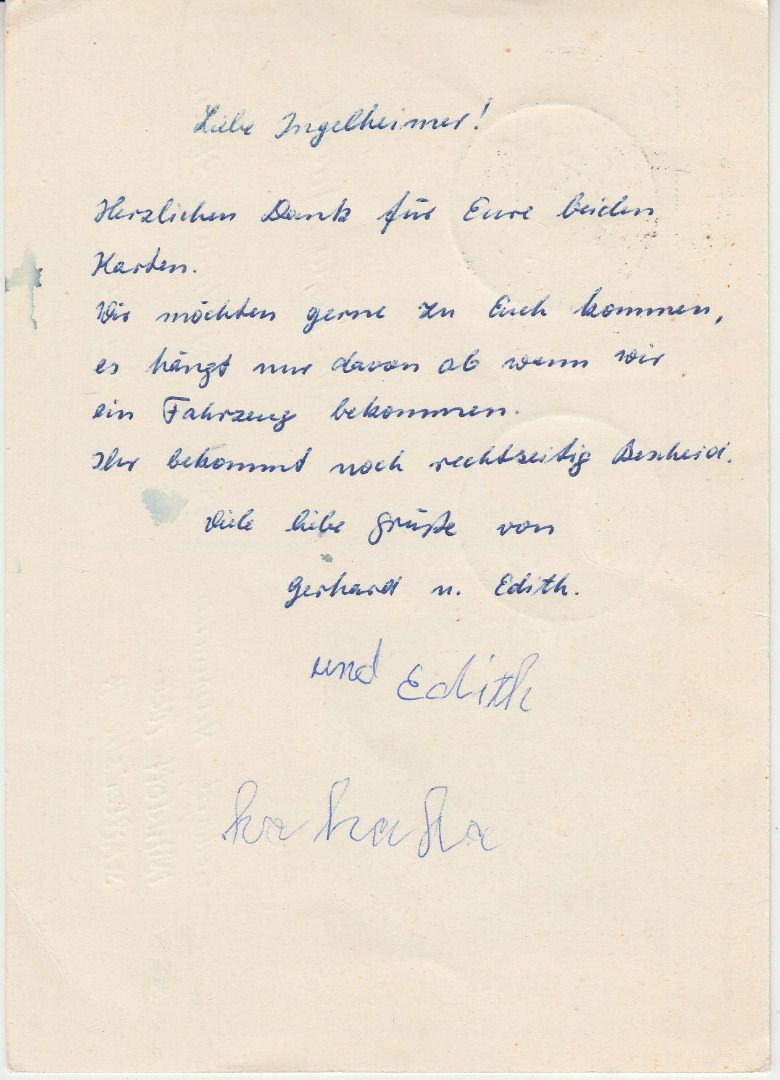 Liebe Ingelheimer!
Herzlichen Dank für Eure beiden
Karten.
Wir möchten gerne zu Euch kommen,
es hängt nur davon ab wann wir
ein Fahrzeug bekommen.
Ihr bekommt noch rechtzeitig Bescheid.
Viele liebe Grüße von
Gerhard u. Edith.
und Edith